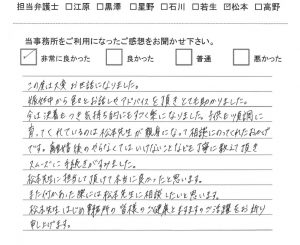 担当弁護士 □江原 □黒澤 □星野 □石川 □若生 ☑松本 □高野
当事務所をご利用になったご感想をお聞かせ下さい。
☑ 非常に良かった □ 良かった □ 普通 □ 悪かった
この度は大変お世話になりました。
相談中から色々とお話しやアドバイスを頂きとても助かりました。
今は決着もつき気持ち的にもすごく楽になりました。子供も順調に
育ってくれているのは松本先生が親身になって相談にのってくれたおかげ
です。離婚後のやらなくてはいけないことなども丁寧に教えて頂き
スムーズに手続きがすみました。
松本先生に担当して頂けて本当に良かったと思います。
また何かあった際には松本先生に相談したいと思います。
松本先生はじめ事務所の皆様のご健康とますますのご活躍をお祈り
申し上げます。